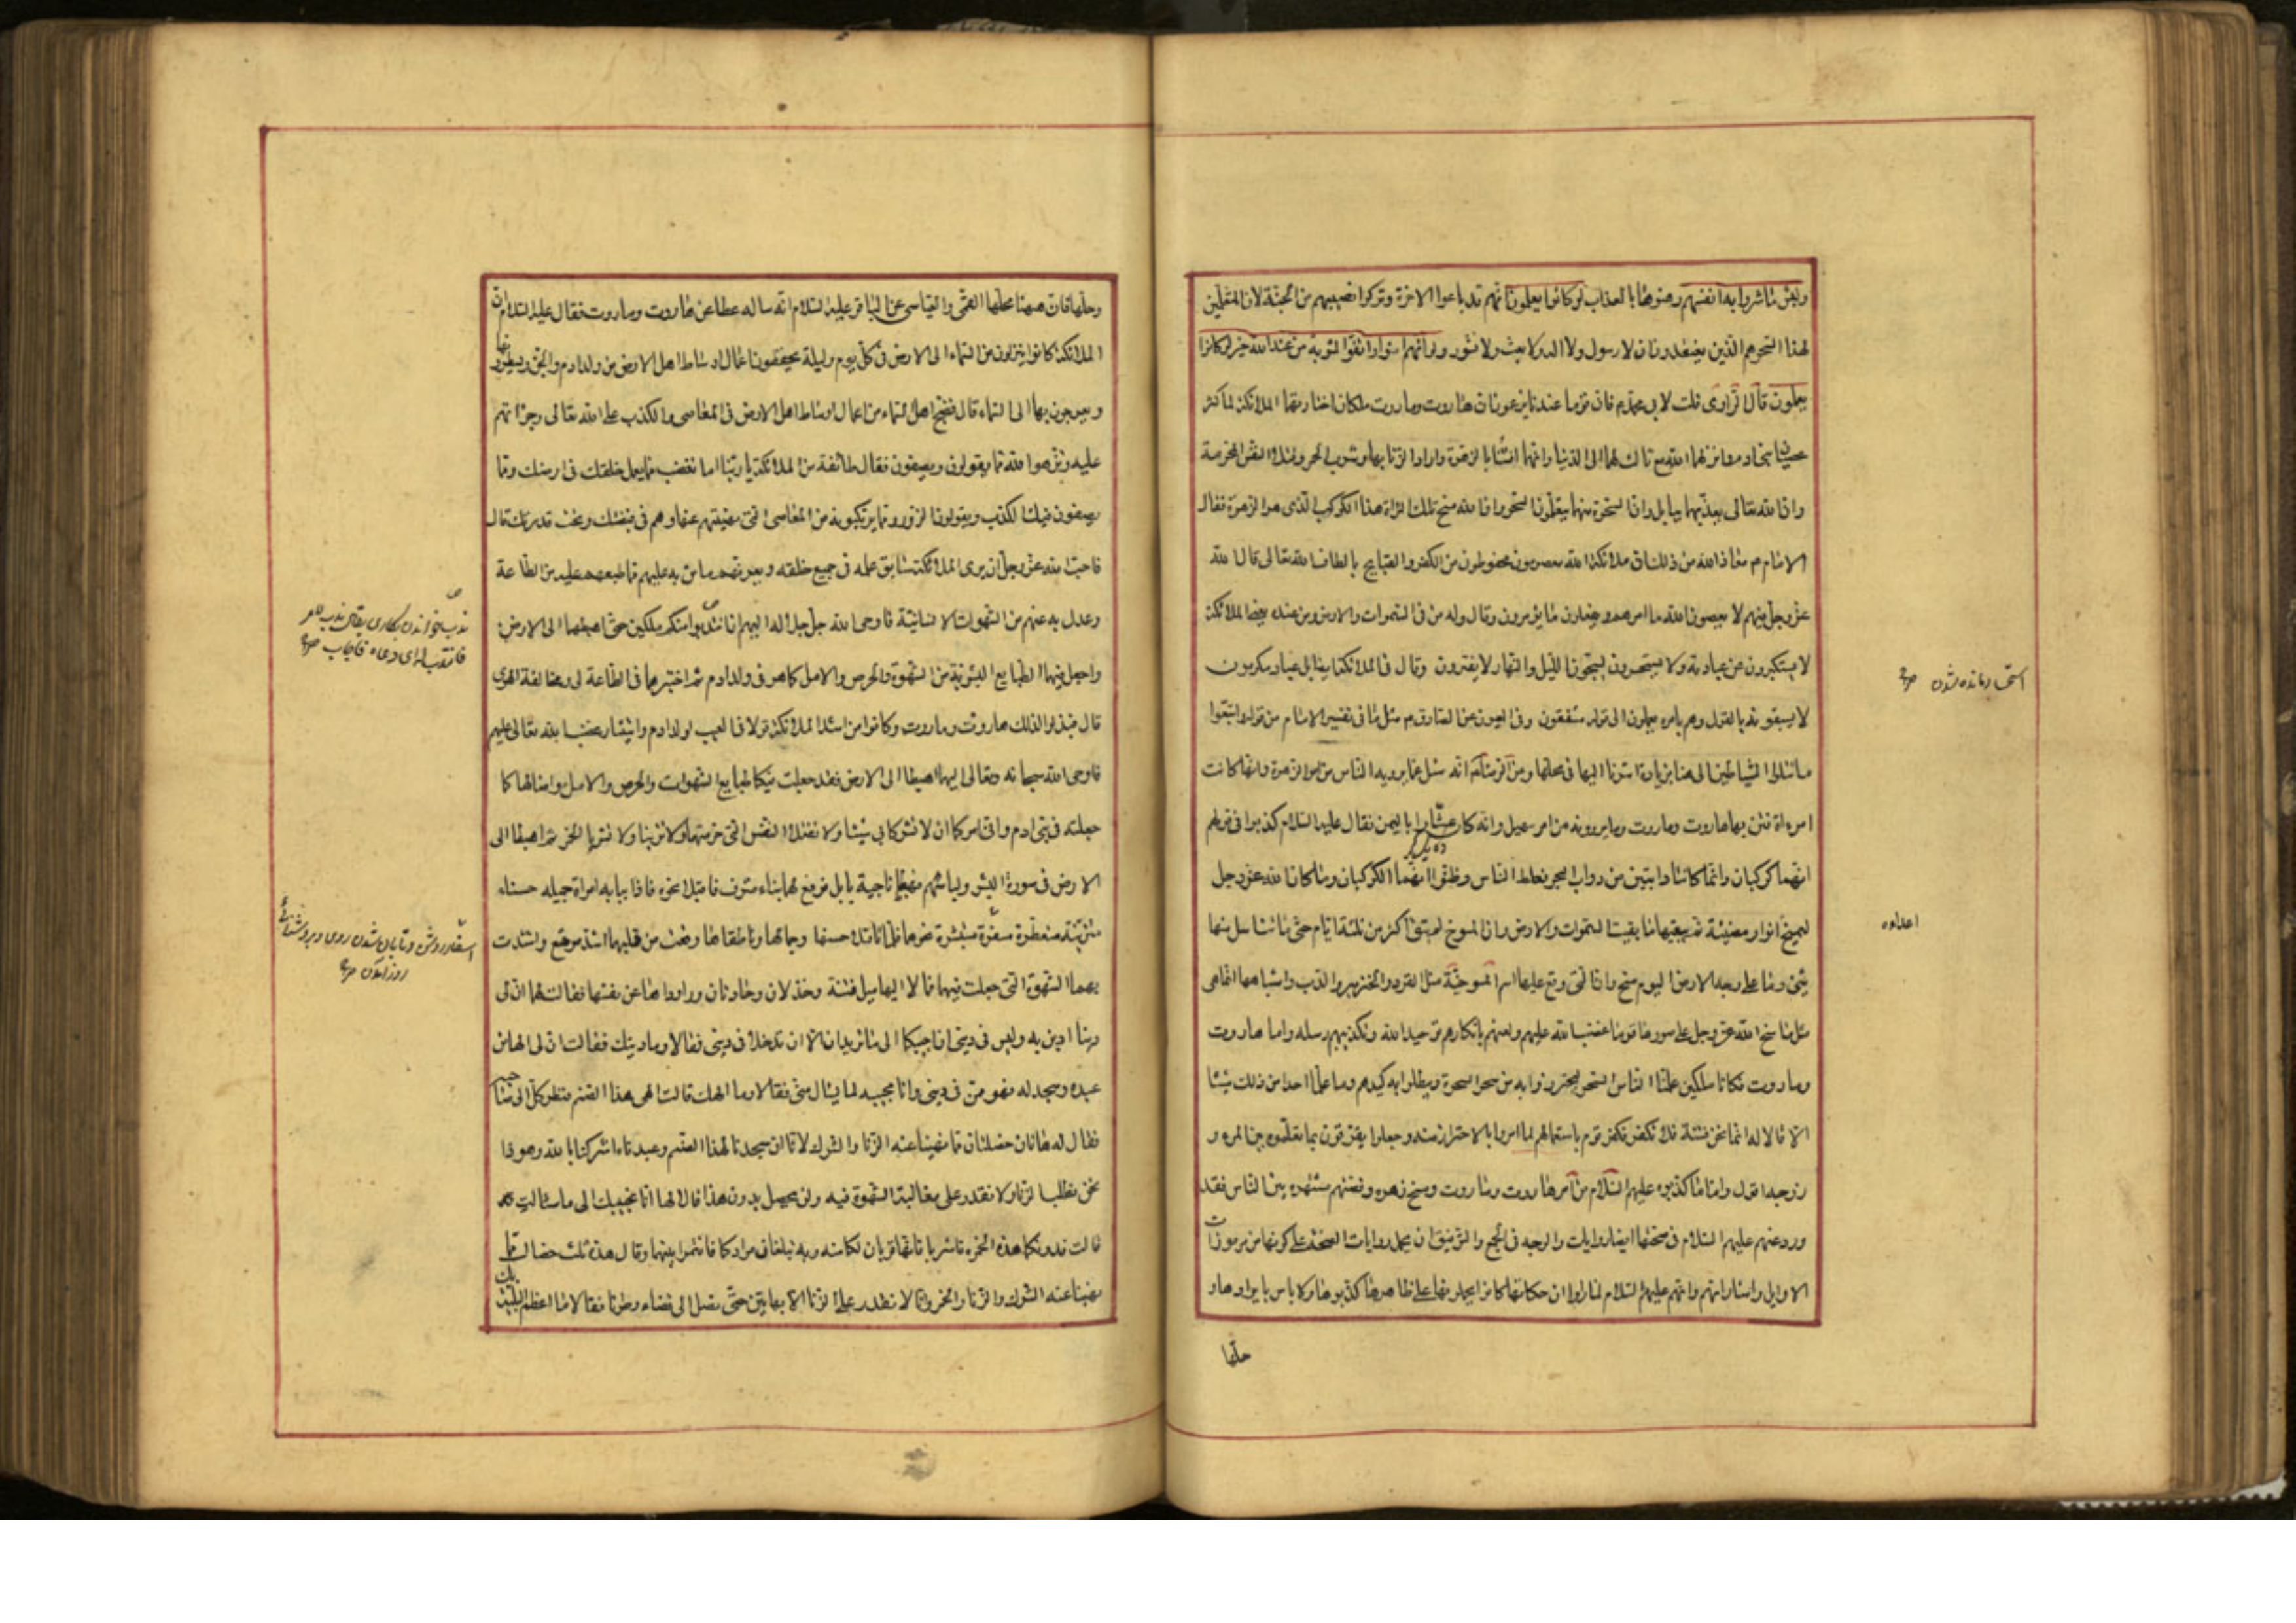 ولبئس ماشروا به انفسهم رهنوها بالعذاب لو كانوا يعلمون انهم قد باعوا الاخرة وتركوا نصيبهم من الجنة لان المتعلمين
لهذا السحر هم الذين يعتقدون ان لا رسول ولا اله ولا بعث ولا نشور ولو انهم امنوا واتقوا لمثوبة من عند الله خير لو كانوا
يعلمون قال الراوى قلت لابى محمد م فان قوما عندنا يزعمون ان هاروت وماروت ملكان اختارتهما الملائكة لما كثر
عصيان بنى ادم وانزلهما الله مع ثالث لهما الى الدنيا وانهما افتتنا بالزهرة وارادا الزنا بها وشرب الخمر وقتل النفس المحرمة
وان الله تعالى يعذبهما ببابل وان السحرة منهما يتعلمون السحر وان الله مسخ تلك المراة هذا الكوكب الذى هو الزهرة فقال
الامام م معاذ الله من ذلك ان ملائكة الله معصومون محفوظون من الكفر والقبايح بالطاف الله تعالى قال الله
عز وجل فيهم لا يعصون الله ما امرهم ويفعلون ما يؤمرون وقال وله من فى السموات والارض ومن عنده يعنى الملائكة
لا يستكبرون عن عبادته ولا يستحسرون يسبحون الليل والنهار لا يفترون وقال فى الملائكة ايضا بل عباد مكرمون
لا يسبقونه بالقول وهم بامره يعملون الى قوله مشفقون وفى العيون عن الصادق م مثل ما فى تفسير الامام من قوله واتبعوا
ما تتلوا الشياطين الى هنا بزيادة اشرنا اليها فى محلها وعن الرضا انه سئل عما يرويه الناس من امر الزهرة وانها كانت
امراة فتن بها هاروت وماروت وما يروونه من امر سهيل وانه كان عشارا باليمن فقال عليه السلام كذبوا فى قولهم
انهما كوكبان وانما كانتا دابتين من دواب البحر فغلط الناس وظنوا انهما الكوكبان وما كان الله عز وجل
ليمسخ انوارا مضيئة ثم يبقيها ما بقيت السموات والارض وان المسوخ لم تبق اكثر من ثلثة ايام حتى ماتت وما تناسل منها
شئ وما على وجه الارض اليوم مسخ وان التى وقع عليها اسم المسوخية مثل القرد والخنزير والدب واشباهها انما هى
مثل ما مسخ الله عز وجل على صورها قوما غضب الله عليهم ولعنهم بانكارهم توحيد الله وتكذيبهم رسله واما هاروت
وماروت فكانا ملكين علما الناس السحر ليحترزوا به من سحر السحرة ويبطلوا به كيدهم وما علما احدا من ذلك شيئا
الا قالا له انما نحن فتنة فلا تكفر فكفر قوم باستعمالهم لما امروا بالاحتراز منه وجعلوا يفرقون بما تعلموه بين المرء و
زوجه اقول واما ما كذبوه عليهم السلام من امر هاروت وماروت ومسخ زهره وقصتهم مشتهره بين الناس فقد
ورد عنهم عليهم السلام فى صحتها ايضا روايات والوجه فى الجمع والتوفيق ان يحمل روايات الصحة على كونها من مرموزات
الاوايل واشاراتهم وانهم عليهم السلام لما راوا ان حكاتها كانوا يحملونها على ظاهرها كذبوها ولا باس بايرادها و
حلها
استحسار مانده شدن ص
اعداده
وحلها فان ههنا محلها القمى والعياشى عن الباقر عليه السلام انه ساله عطا عن هاروت وماروت فقال عليه السلام ان
الملائكة كانوا ينزلون من السماء الى الارض فى كل يوم وليلة يحفظون اعمال اوساط اهل الارض من ولد ادم والجن ويكتبونها
ويعرجون بها الى السماء قال فضج اهل السماء من اعمال اوساط اهل الارض فى المعاصى والكذب على الله تعالى وجراتهم
عليه ونزهوا الله مما يقولون ويصفون فقال طائفة من الملائكة يا ربنا اما تغضب مما يعمل خلقك فى ارضك ومما
يصفون فيك الكذب ويقولون الزور ومما يرتكبونه من المعاصى التى نهيتهم عنها وهم فى قبضتك وتحت قدرتك قال
فاحب الله عز وجل ان يرى الملائكة سابق علمه فى جميع خلقه ويعرفهم ما من به عليهم مما طبعهم عليه من الطاعة
وعدل به عنهم من الشهوات الانسانية فاوحى الله جل جلاله اليهم ان انتدبوا منكم ملكين حتى اهبطهما الى الارض
واجعل فيهما الطبايع البشرية من الشهوة والحرص والامل كما هو فى ولد ادم ثم اختبرهما فى الطاعة لى ومخالفة الهوى
قال فندبوا لذلك هاروت وماروت وكانوا من اشد الملائكة قولا فى العيب لولد ادم واستيثار غضب الله تعالى عليهم
فاوحى الله سبحانه وتعالى اليهما اهبطا الى الارض فقد جعلت فيكما طبايع الشهوات والحرص والامل وامثالها كما
جعلته فى بنى ادم وانى امركما ان لا تشركا بى شيئا ولا تقتلا النفس التى حرمتها ولا تزنيا ولا تشربا الخمر ثم اهبطا الى
الارض فى صورة البشر ولباسهم فهبطا ناحية بابل فرفع لهما بناء مشرف فاقبلا نحوه فاذا ببابه امراة جميله حسناء
متزينة متعطرة مسفرة مستبشرة نحوهما فلما تاملا حسنها وجمالها وناطقاها وقعت من قلبهما اشد موقع واشتدت
بهما الشهوة التى جعلت فيهما فمالا اليها ميل فتنة وخذلان وحادثان وراوداها عن نفسها فقالت لهما ان لى
دينا ادين به وليس فى دينى ان اجيبكما الى ما تريدان الا ان تدخلا فى دينى فقالا وما دينك فقالت ان لى الها من
عبده وسجد له فهو ممن فى دينى وانا مجيبه لما يسال منى فقالا وما الهك قالت الهى هذا الصنم فنظر كل الى صاحبه
فقال له هاتان خصلتان مما نهينا عنه الزنا والشرك لانا ان سجدنا لهذا الصنم وعبدناه اشركنا بالله وهو ذا
نحن نطلب الزنا ولا نقدر على مغالبة الشهوة فيه ولن يحصل بدون هذا قالا لها انا نجيبك الى ما سالت
قالت فدونكما هذه الخمره فاشربا فانها قربان لكما منه وبه تبلغان مرادكما فائتمرا بينهما وقال هذه ثلث خصال مما
نهينا عنه الشرك والزنا والخمر وانا لا نقدر على الزنا الا بهاتين حتى نصل الى قضاء وطرنا فقالا ما اعظم البلية بك